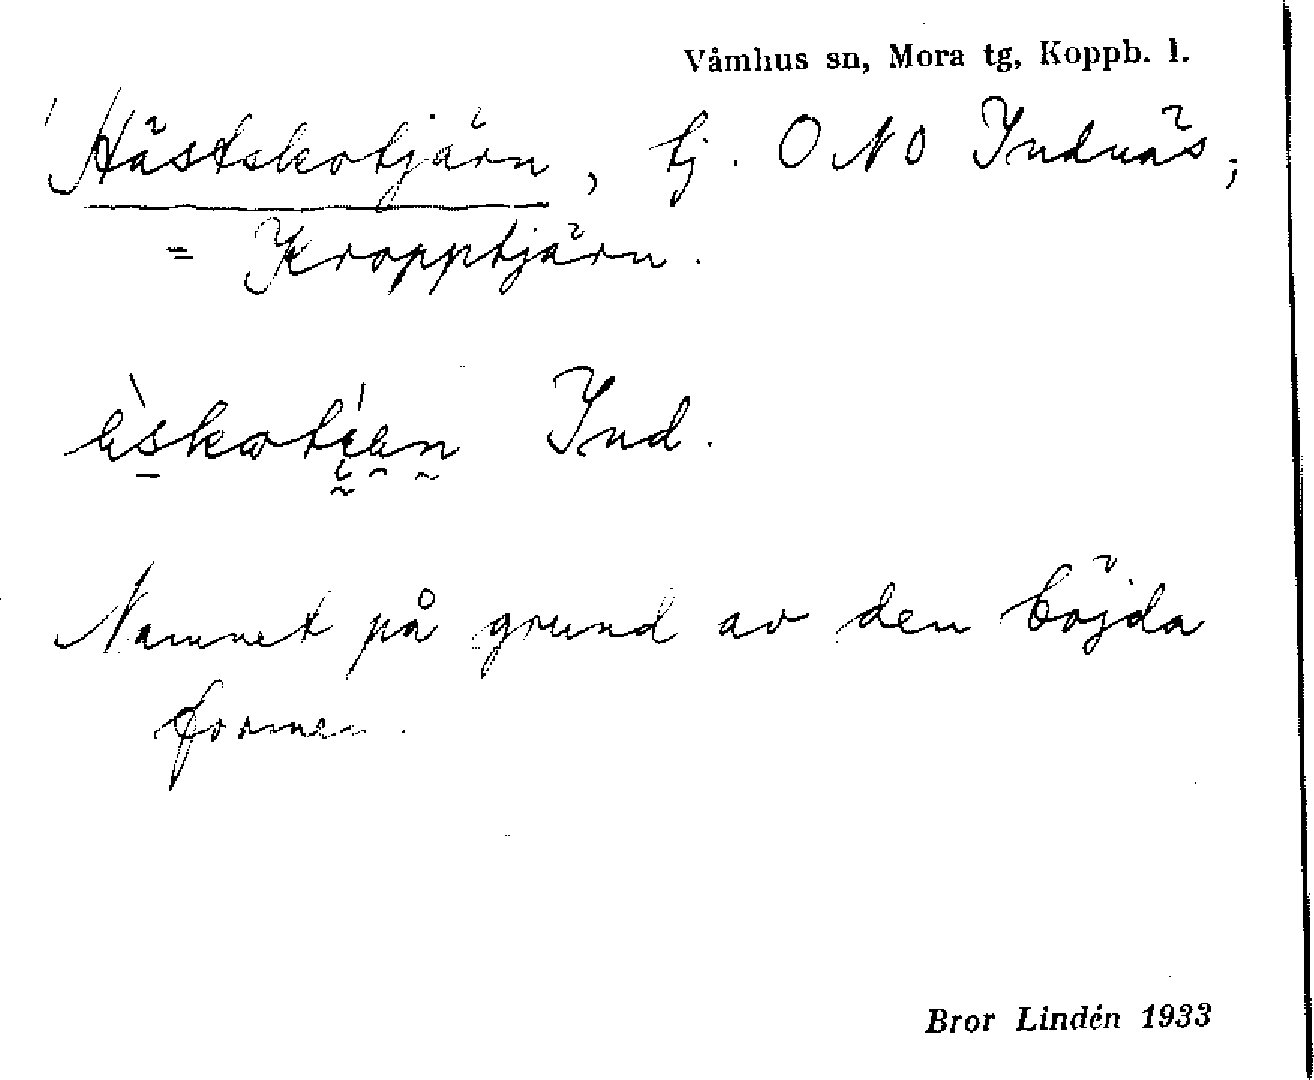 Våmhus sn, Mora tg, Koppb. l.
Hästskotjärn, tj. ONO Indnäs;
= Kropptjärn.
Ind.
Namnet på grund av den böjda
formen.
Bror Lindén 1933